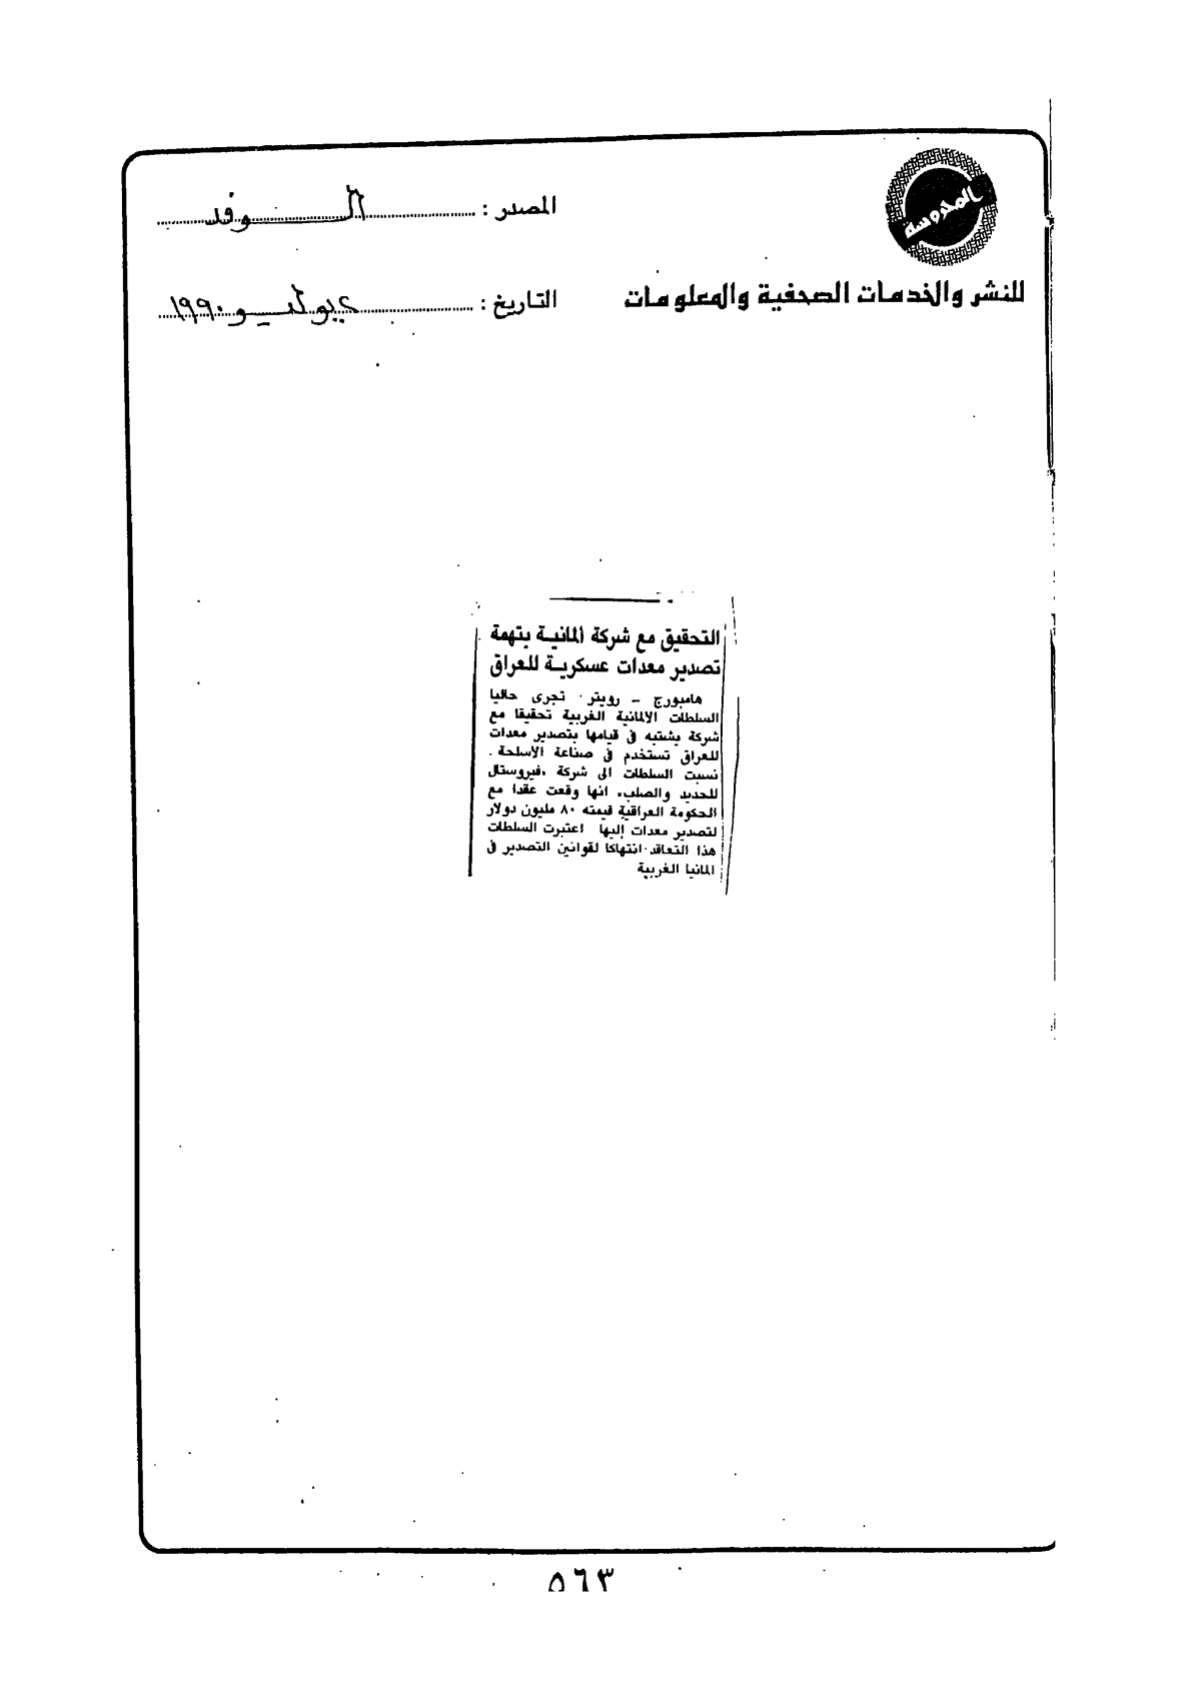 المحروسة
للنشر والخدمات الصحفية والمعلومات
المصدر : الوفد
التاريخ : ٤ يوليو ١٩٩٠
التحقيق مع شركة المانية بتهمة
تصدير معدات عسكرية للعراق
هامبورج ــ رويتر . تجرى حاليا
السلطات الالمانية الغربية تحقيقا مع
شركة يشتبه فى قيامها بتصدير معدات
للعراق تستخدم فى صناعة الاسلحة .
نسبت السلطات الى شركة ،فيروستال
للحديد والصلب، انها وقعت عقدا مع
الحكومة العراقية قيمته ٨٠ مليون دولار
لتصدير معدات إليها اعتبرت السلطات
هذا التعاقد انتهاكا لقوانين التصدير فى
المانيا الغربية
٥٦٣